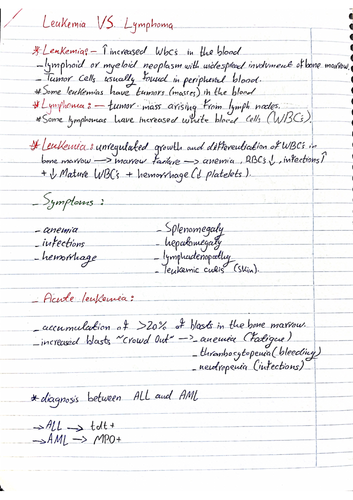 Leukemia VS. Lymphoma
* Leukemia:- ↑ increased WBCs in the blood
- lymphoid or myeloid neoplasm with widespread involvment of bone marrow.
- Tumor cells usually found in peripheral blood.
* Some leukemias have tumors (masses) in the blood
* Lymphoma:- tumor mass arising from lymph nodes.
* Some lymphomas have increased white blood cells (WBCs).
* Leukemia: unregulated growth and differentiation of WBCs in
bone marrow → marrow failure → anemia, RBCs ↓, infections ↑
+ ↓ Mature WBCs + hemorrhage (↓ platelets).
- Symptoms :
- anemia - Splenomegaly
- infections - hepatomegaly
- hemorrhage - lymphadenopathy
- leukemic cutis (skin).
- Acute leukemia :
- accumulation of >20% of blasts in the bone marrow.
- increased blasts "crowd out" → - anemia (fatigue)
- thrombocytopenia (bleeding)
- neutropenia (infections)
* diagnosis between ALL and AML
→ ALL → tdt +
→ AML → MPO+